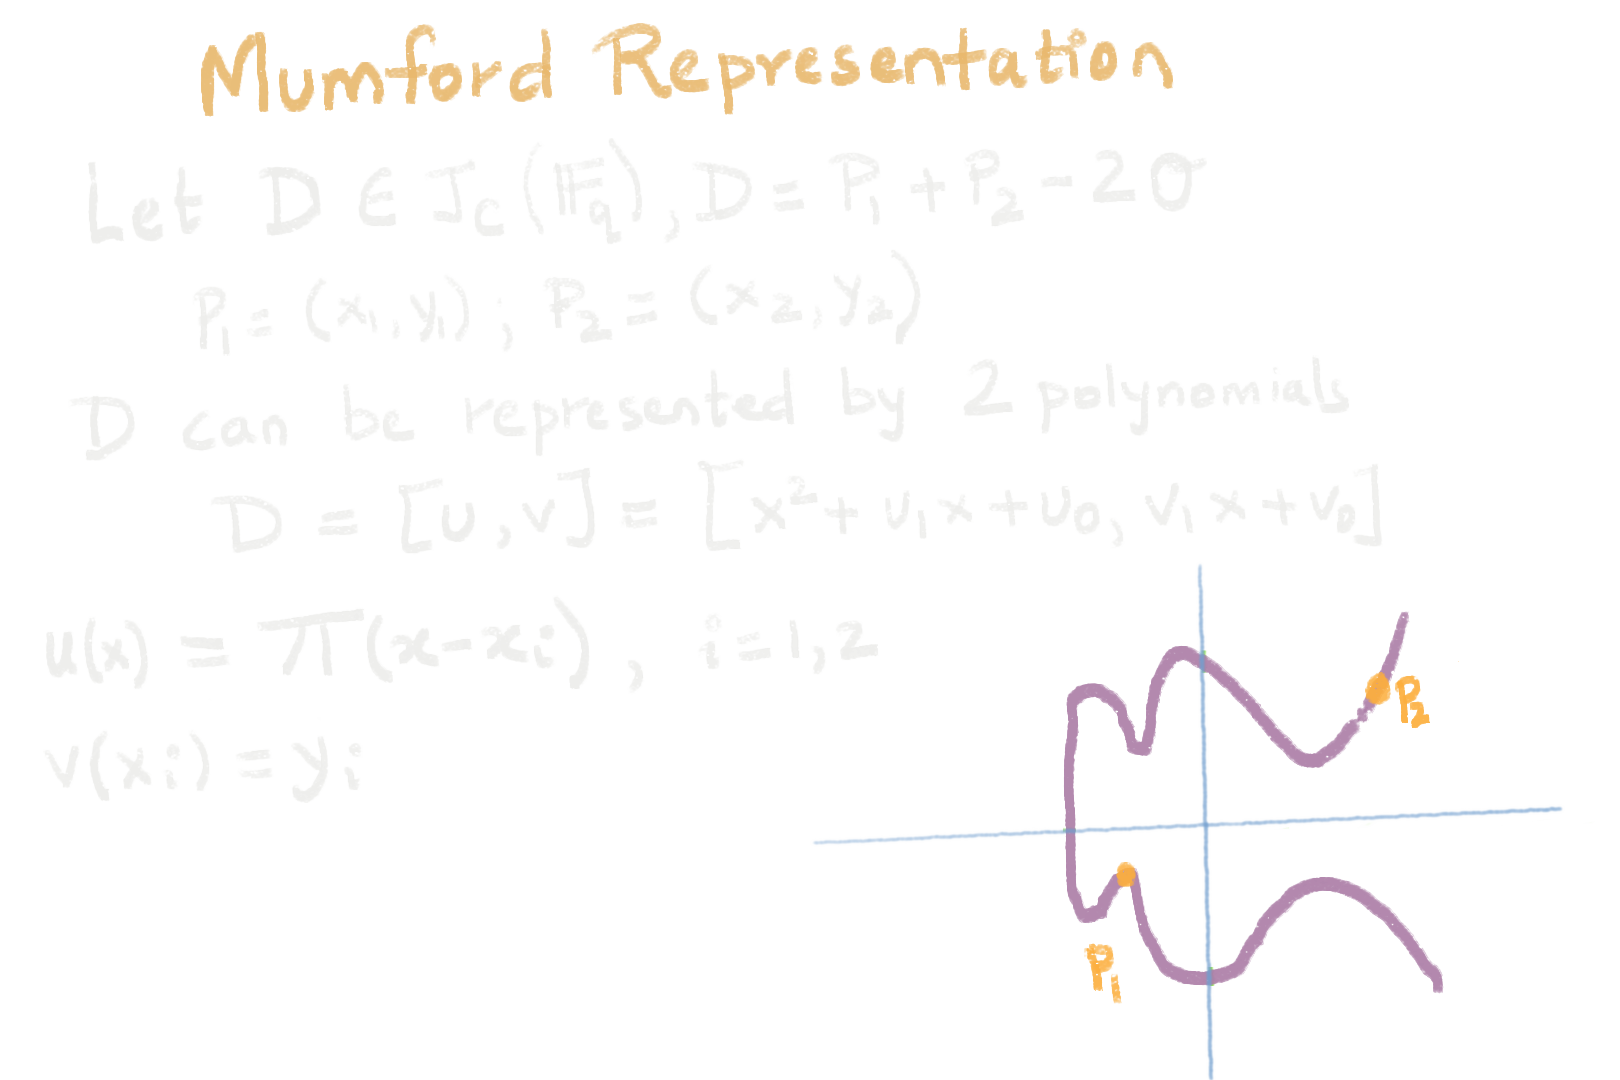 Mumford Representation
Let D ∈ J_C(𝔽_q), D = P_1 + P_2 - 2O
P_1 = (x_1, y_1) ; P_2 = (x_2, y_2)
D can be represented by 2 polynomials
D = [u, v] = [x^2 + u_1 x + u_0, v_1 x + v_0]
u(x) = π(x - x_i), i = 1, 2
v(x_i) = y_i
P_2
P_1